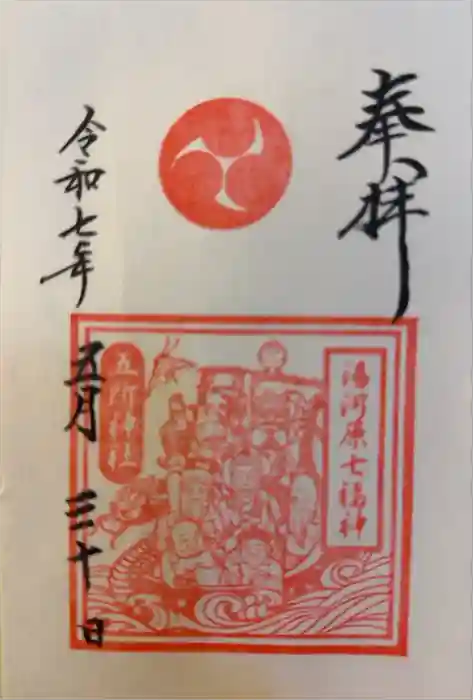 奉拝
湯河原七福神
五所神社
令和七年 五月 三十日